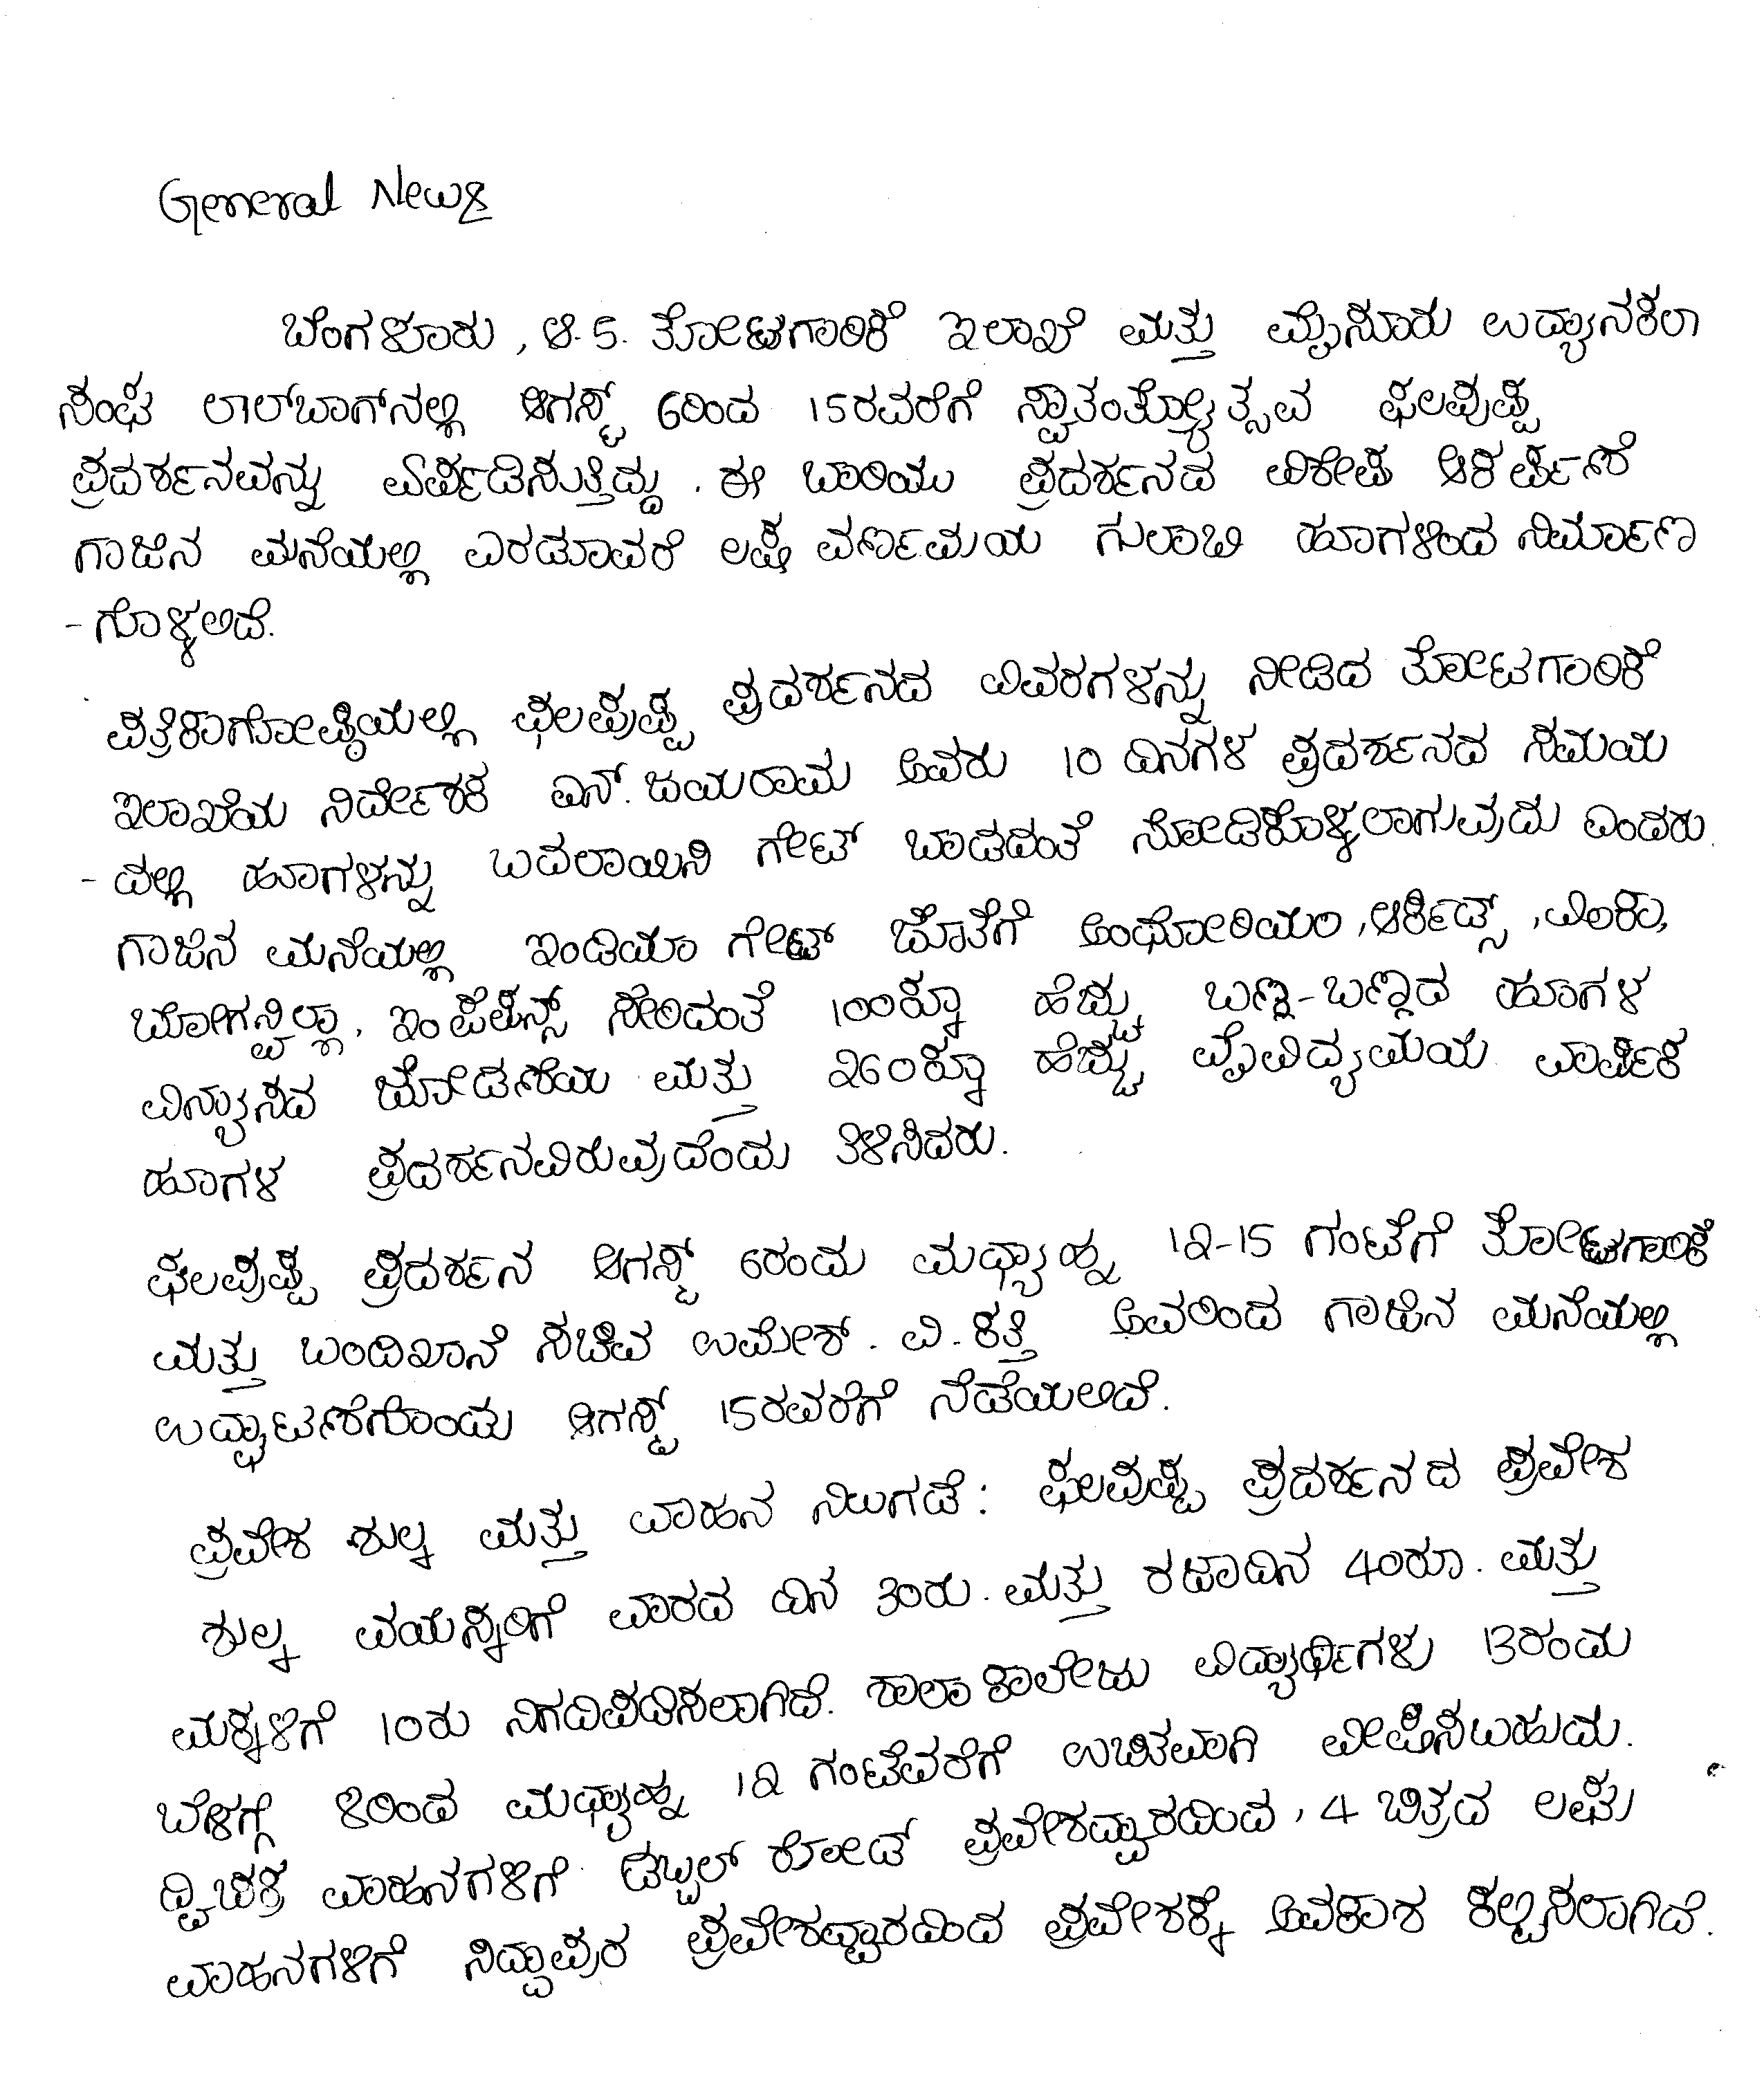 General News
ಬೆಂಗಳೂರು, ಆ. 5. ತೋಟಗಾರಿಕೆ ಇಲಾಖೆ ಮತ್ತು ಮೈಸೂರು ಉದ್ಯಾನಕಲಾ
ಸಂಘ ಲಾಲ್‌ಬಾಗ್‌ನಲ್ಲಿ ಆಗಸ್ಟ್ 6ರಿಂದ 15ರವರೆಗೆ ಸ್ವಾತಂತ್ರ್ಯೋತ್ಸವ ಫಲಪುಷ್ಪ
ಪ್ರದರ್ಶನವನ್ನು ಏರ್ಪಡಿಸುತ್ತಿದ್ದು. ಈ ಬಾರಿಯು ಪ್ರದರ್ಶನದ ವಿಶೇಷ ಆಕರ್ಷಣೆ
ಗಾಜಿನ ಮನೆಯಲ್ಲಿ ಎರಡೂವರೆ ಲಕ್ಷ ವರ್ಣಮಯ ಗುಲಾಬಿ ಹೂಗಳಿಂದ ನಿರ್ಮಾಣ
-ಗೊಳ್ಳಲಿದೆ.
ಪತ್ರಿಕಾಗೋಷ್ಠಿಯಲ್ಲಿ ಫಲಪುಷ್ಪ ಪ್ರದರ್ಶನದ ವಿವರಗಳನ್ನು ನೀಡಿದ ತೋಟಗಾರಿಕೆ
ಇಲಾಖೆಯ ನಿರ್ದೇಶಕ ಎನ್. ಜಯರಾಮ ಅವರು 10 ದಿನಗಳ ಪ್ರದರ್ಶನದ ಸಮಯ
-ದಲ್ಲಿ ಹೂಗಳನ್ನು ಬದಲಾಯಿಸಿ ಗೇಟ್ ಬಾಡದಂತೆ ನೋಡಿಕೊಳ್ಳಲಾಗುವುದು ಎಂದರು.
ಗಾಜಿನ ಮನೆಯಲ್ಲಿ ಇಂಡಿಯಾ ಗೇಟ್ ಜೊತೆಗೆ ಅಂಥೋರಿಯಂ, ಆರ್ಕಿಡ್ಸ್, ವಿಂಕಾ,
ಬೋಗನ್ವಿಲ್ಲಾ, ಇಂಪೆಷಿನ್ಸ್ ಸೇರಿದಂತೆ 100ಕ್ಕೂ ಹೆಚ್ಚು ಬಣ್ಣ-ಬಣ್ಣದ ಹೂಗಳ
ವಿನ್ಯಾಸದ ಜೋಡಣೆಯ ಮತ್ತು 260ಕ್ಕೂ ಹೆಚ್ಚು ವೈವಿದ್ಯಮಯ ವಾರ್ಷಿಕ
ಹೂಗಳ ಪ್ರದರ್ಶನವಿರುವುದೆಂದು ತಿಳಿಸಿದರು.
ಫಲಪುಷ್ಪ ಪ್ರದರ್ಶನ ಆಗಸ್ಟ್ 6ರಂದು ಮಧ್ಯಾಹ್ನ 12-15 ಗಂಟೆಗೆ ತೋಟಗಾರಿಕೆ
ಮತ್ತು ಬಂದಿಖಾನೆ ಸಚಿವ ಉಮೇಶ್. ವಿ. ಕತ್ತಿ ಅವರಿಂದ ಗಾಜಿನ ಮನೆಯಲ್ಲಿ
ಉದ್ಘಾಟಣೆಗೊಂಡು ಆಗಸ್ಟ್ 15ರವರೆಗೆ ನೆಡೆಯಲಿದೆ.
ಪ್ರವೇಶ ಶುಲ್ಕ ಮತ್ತು ವಾಹನ ನಿಲುಗಡೆ: ಫಲಪುಷ್ಪ ಪ್ರದರ್ಶನದ ಪ್ರವೇಶ
ಶುಲ್ಕ ವಯಸ್ಕರಿಗೆ ವಾರದ ದಿನ 30ರು. ಮತ್ತು ರಜಾದಿನ 40ರೂ. ಮತ್ತು
ಮಕ್ಕಳಿಗೆ 10ರು ನಿಗದಿಪಡಿಸಲಾಗಿದೆ. ಶಾಲಾ ಕಾಲೇಜು ವಿದ್ಯಾರ್ಥಿಗಳು 13ರಂದು
ಬೆಳಗ್ಗೆ 8ರಿಂದ ಮಧ್ಯಾಹ್ನ 12 ಗಂಟೆವರೆಗೆ ಉಚಿತವಾಗಿ ವೀಕ್ಷಿಸಬಹುದು.
ದ್ವಿಚಕ್ರ ವಾಹನಗಳಿಗೆ ಡಬ್ಬಲ್ ರೋಡ್ ಪ್ರವೇಶದ್ವಾರದಿಂದ, 4 ಚಿತ್ರದ ಲಘು
ವಾಹನಗಳಿಗೆ ಸಿದ್ದಾಪುರ ಪ್ರವೇಶದ್ವಾರದಿಂದ ಪ್ರವೇಶಕ್ಕೆ ಅವಕಾಶ ಕಲ್ಪಿಸಲಾಗಿದೆ.